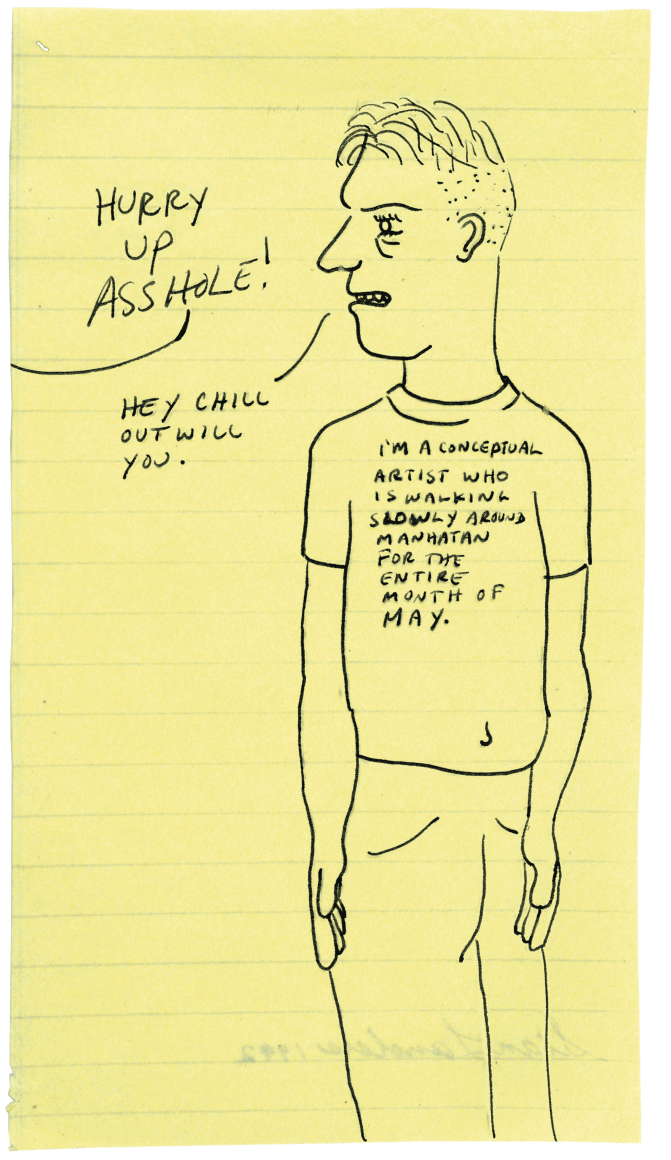 HURRY
UP
ASSHOLE!
HEY CHILL
OUT WILL
YOU.
I'M A CONCEPTUAL
ARTIST WHO
IS WALKING
SLOWLY AROUND
MANHATAN
FOR THE
ENTIRE
MONTH OF
MAY.
Sean Landers 1992